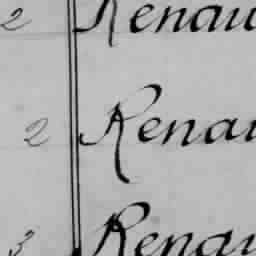 2 Renau
2 Renau
3 Renau